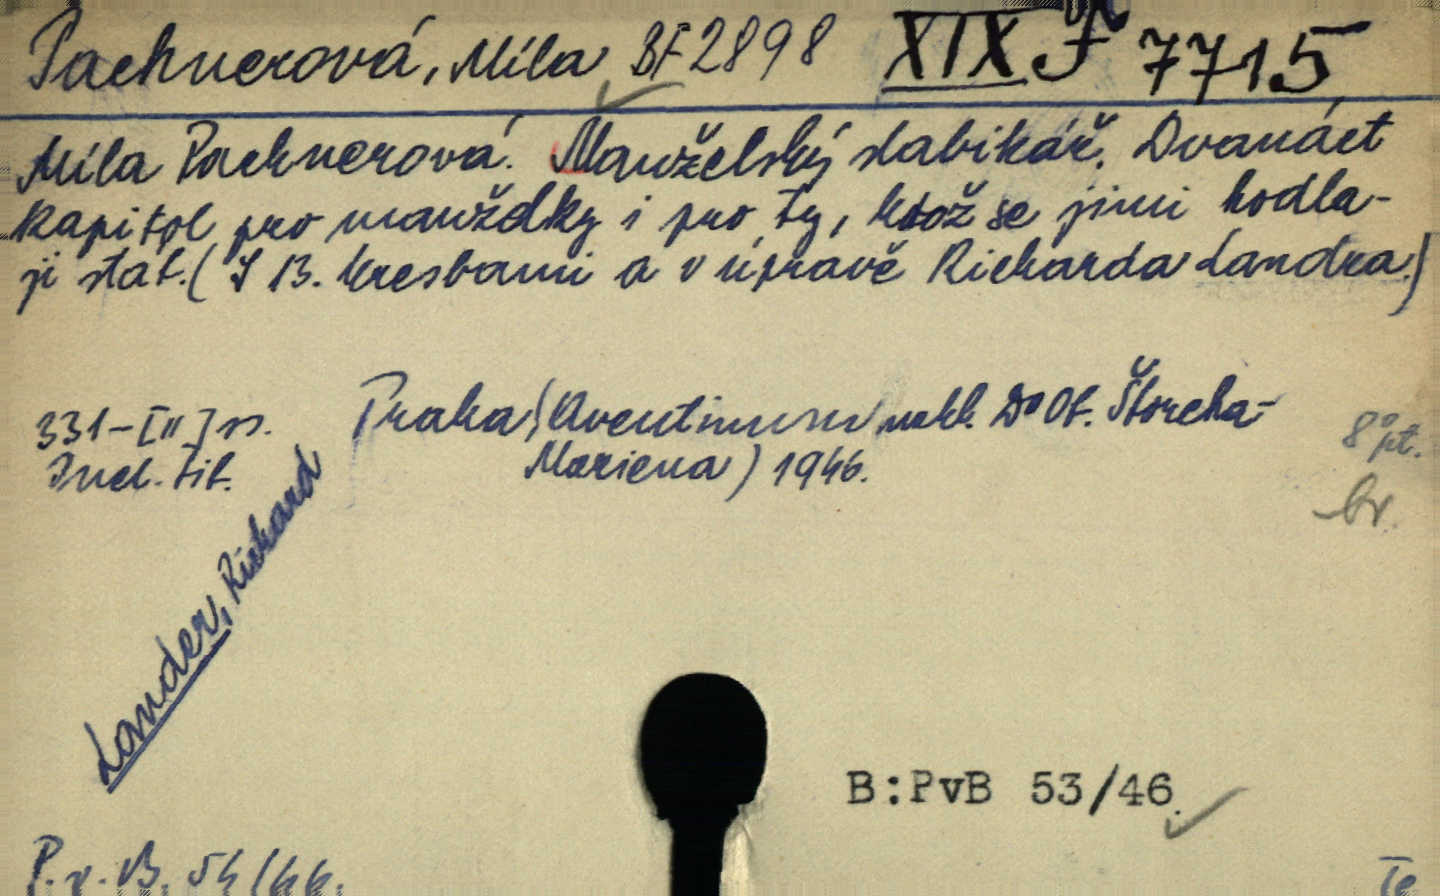 Pachnerová, Míla BF 2898 XIX F 7715
Míla Pachnerová. Manželský slabikář. Dvanáct
kapitol pro manželky i pro ty, kdož se jimi hodla-
jí stát. (S 13. kresbami a v úpravě Richarda Landra.)
331-[II] ss. Praha (Aventinum nakl. Dr Ot. Štorcha-
Incl. tit. Mariena) 1946.
8° pt.
br.
Lander, Richard
B:PvB 53/46
P. v. B. 54/46.
Te